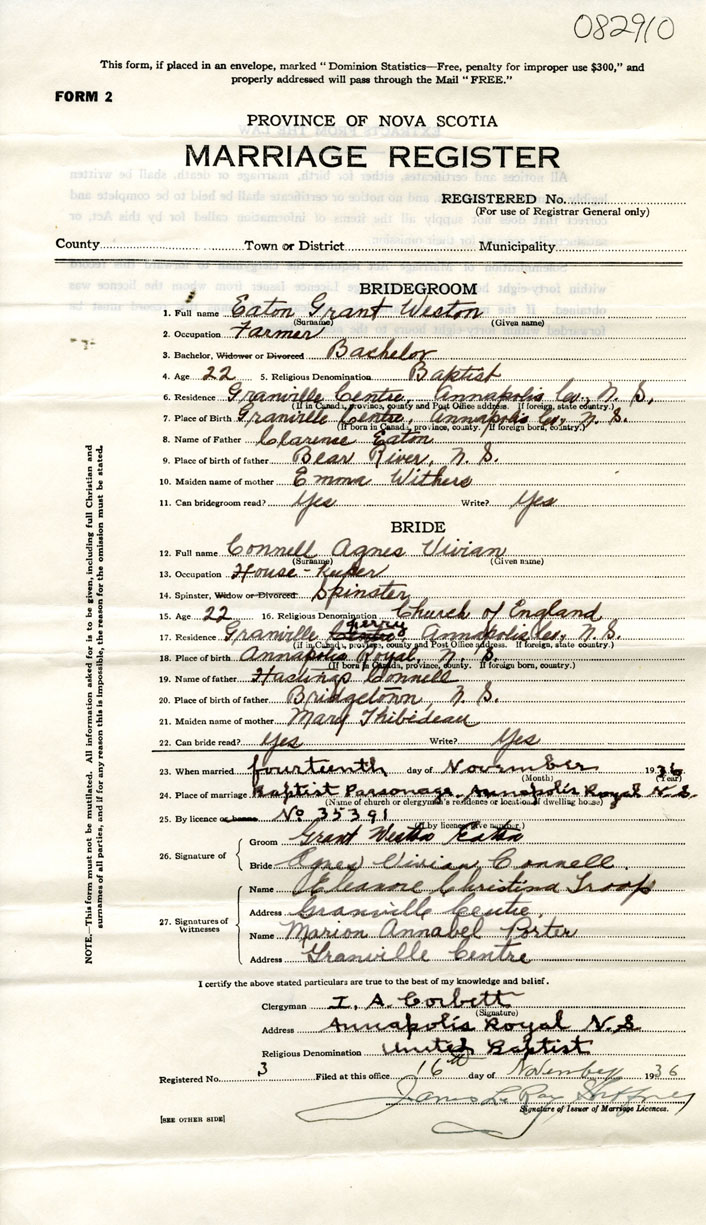 082910
This form, if placed in an envelope, marked "Dominion Statistics—Free, penalty for improper use $300," and
properly addressed will pass through the Mail "FREE."
FORM 2
PROVINCE OF NOVA SCOTIA
MARRIAGE REGISTER
REGISTERED No.
(For use of Registrar General only)
County Town or District Municipality
BRIDEGROOM
1. Full name Eaton Grant Weston
(Surname) (Given name)
2. Occupation Farmer
3. Bachelor, Widower or Divorced Bachelor
4. Age 22 5. Religious Denomination Baptist
6. Residence Granville Centre, Annapolis Co., N. S.
(If in Canada, province, county and Post Office address. If foreign, state country.)
7. Place of Birth Granville Centre, Annapolis Co., N. S.
(If born in Canada, province, county. If foreign born, country.)
8. Name of Father Clarence Eaton
9. Place of birth of father Bear River, N. S.
10. Maiden name of mother Emma Withers
11. Can bridegroom read? Yes Write? Yes
BRIDE
12. Full name Connell Agnes Vivian
(Surname) (Given name)
13. Occupation House-Kuper
14. Spinster, Widow or Divorced Spinster
15. Age 22 16. Religious Denomination Church of England
17. Residence Granville Centre Ferry, Annapolis Co., N. S.
(if in Canada, province, county and Post Office address. If foreign, state country.)
18. Place of birth Annapolis Royal, N. S.
(If born in Canada, province, county. If foreign born, country.)
19. Name of father Hastings Connell
20. Place of birth of father Bridgetown, N. S.
21. Maiden name of mother Mary Thibideau
22. Can bride read? Yes Write? Yes
23. When married fourteenth day of November 1936
(Month) (Year)
24. Place of marriage Baptist Parsonage, Annapolis Royal N.S.
(Name of church or clergyman's residence or location of dwelling house)
25. By licence or banns No 35391
(If by licence give number)
26. Signature of
Groom Grant Weston Eaton
Bride Agnes Vivian Connell
27. Signatures of Witnesses
Name Eleanore Christina Troop
Address Granville Centre,
Name Marion Annabel Porter
Address Granville Centre
I certify the above stated particulars are true to the best of my knowledge and belief.
Clergyman I. A. Corbett
(Signature)
Address Annapolis Royal N.S
Religious Denomination United Baptist
Registered No. 3 Filed at this office 16th day of November 1936
James Le Ray
Signature of Issuer of Marriage Licences.
[SEE OTHER SIDE]
NOTE.—This form must not be mutilated. All information asked for is to be given, including full Christian and
surnames of all parties, and if for any reason this is impossible, the reason for the omission must be stated.